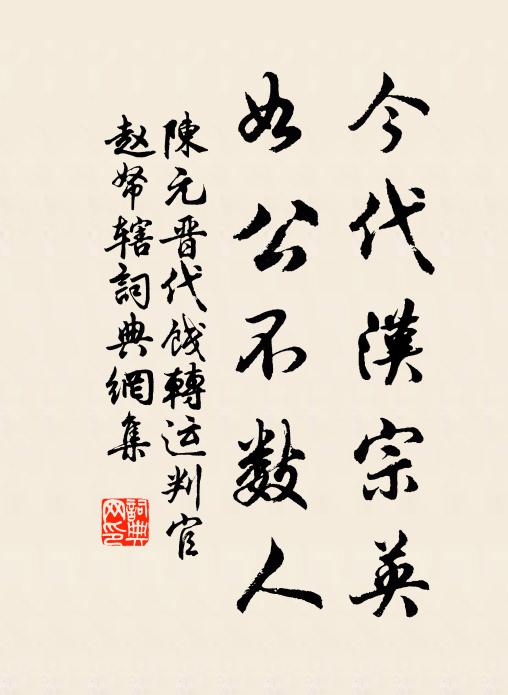 今代漢宗英
如公不數人
陳元晋代饯轉运判官
赵帑辖詞典網集
詞典
网印